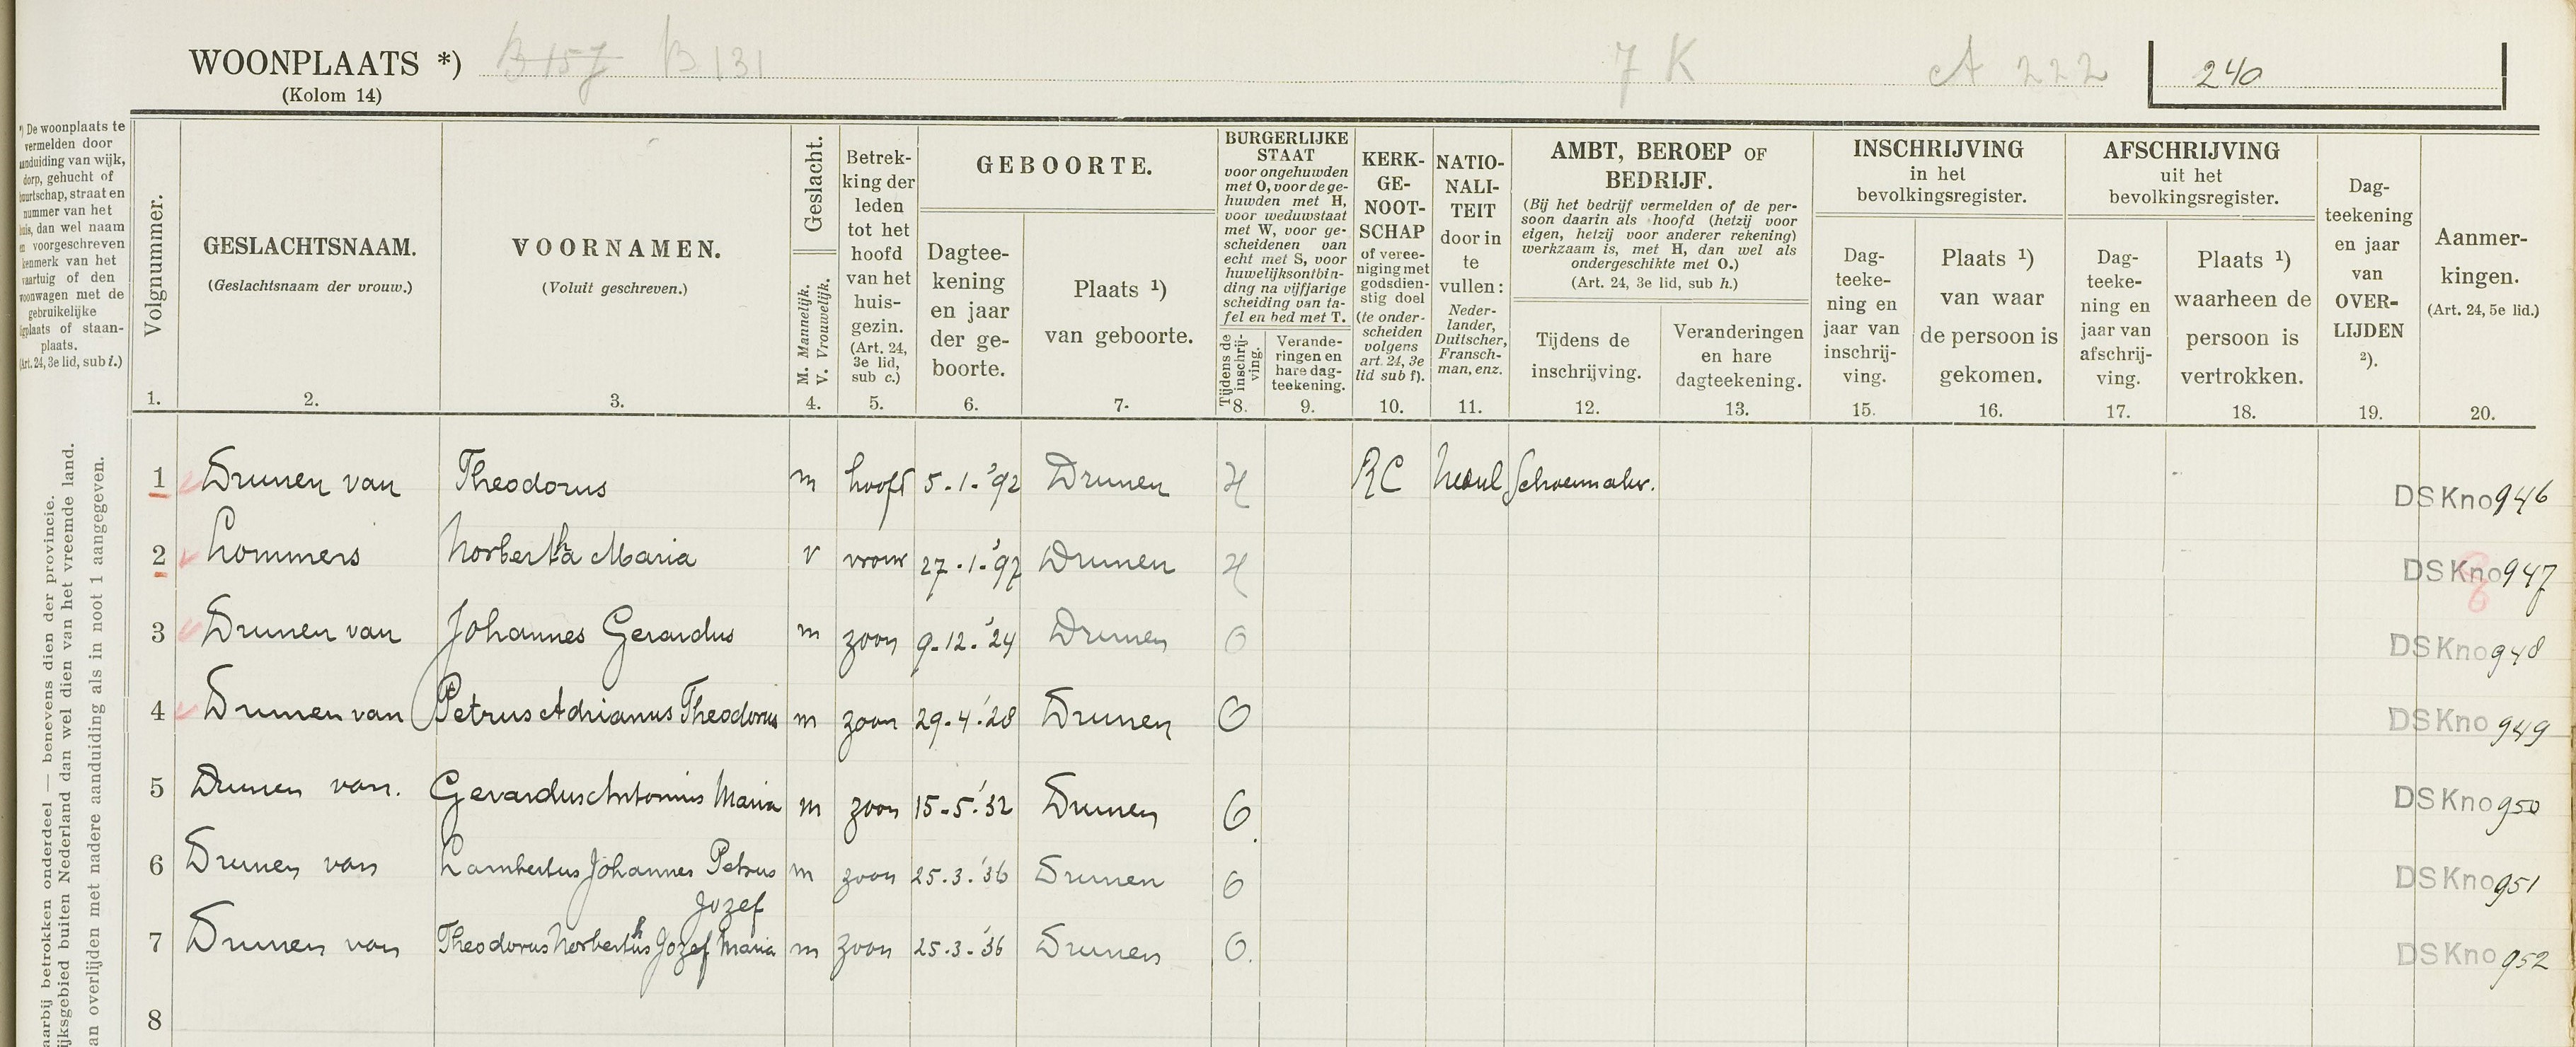 WOONPLAATS *) B 157 B 131 7 K A 222 240
(Kolom 14)
*) De woonplaats te
vermelden door
aanduiding van wijk,
dorp, gehucht of
buurtschap, straat en
nummer van het
huis, dan wel naam
en voorgeschreven
kenmerk van het
vaartuig of den
woonwagen met de
gebruikelijke
ligplaats of staan-
plaats.
(Art. 24, 3e lid, sub i.)
aarbij betrokken onderdeel — benevens dien der provincie.
ijksgebied buiten Nederland dan wel dien van het vreemde land.
an overlijden met nadere aanduiding als in noot 1 aangegeven.
Volgnummer.
1.
GESLACHTSNAAM.
(Geslachtsnaam der vrouw.)
2.
VOORNAMEN.
(Voluit geschreven.)
3.
Geslacht.
M. Mannelijk.
V. Vrouwelijk.
4.
Betrek-
king der
leden
tot het
hoofd
van het
huis-
gezin.
(Art. 24,
3e lid,
sub c.)
5.
GEBOORTE.
Dagtee-
kening
en jaar
der ge-
boorte.
6.
Plaats ¹)
van geboorte.
7.
BURGERLIJKE
STAAT
voor ongehuwden
met O, voor de ge-
huwden met H,
voor weduwstaat
met W, voor ge-
scheidenen van
echt met S, voor
huwelijksontbin-
ding na vijfjarige
scheiding van ta-
fel en bed met T.
Tijdens de
inschrij-
ving.
8.
Verande-
ringen en
hare dag-
teekening.
9.
KERK-
GE-
NOOT-
SCHAP
of veree-
niging met
godsdien-
stig doel
(te onder-
scheiden
volgens
art. 24, 3e
lid sub f).
10.
NATIO-
NALI-
TEIT
door in
te
vullen:
Neder-
lander,
Duitscher,
Fransch-
man, enz.
11.
AMBT, BEROEP OF
BEDRIJF.
(Bij het bedrijf vermelden of de per-
soon daarin als hoofd (hetzij voor
eigen, hetzij voor anderer rekening)
werkzaam is, met H, dan wel als
ondergeschikte met O.)
(Art. 24, 3e lid, sub h.)
Tijdens de
inschrijving.
12.
Veranderingen
en hare
dagteekening.
13.
INSCHRIJVING
in het
bevolkingsregister.
Dag-
teeke-
ning en
jaar van
inschrij-
ving.
15.
Plaats ¹)
van waar
de persoon is
gekomen.
16.
AFSCHRIJVING
uit het
bevolkingsregister.
Dag-
teeke-
ning en
jaar van
afschrij-
ving.
17.
Plaats ¹)
waarheen de
persoon is
vertrokken.
18.
Dag-
teekening
en jaar
van
OVER-
LIJDEN
²).
19.
Aanmer-
kingen.
(Art. 24, 5e lid.)
20.
1 Drunen van Theodorus m hooft 5-1-'92 Drunen H RC Neerl Schoenmaker. DSKno 946
2 Lommers Norbertha Maria v vrouw 27-1-'97 Drunen H DSKno 947
3 Drunen van Johannes Gerardus m zoon 9-12-'24 Drunen O DSKno 948
4 Drunen van Petrus Adrianus Theodorus m zoon 29-4-'28 Drunen O DSKno 949
5 Drunen van. Gerardus Antonius Maria m zoon 15-5-'32 Drunen O. DSKno 950
6 Drunen van Lambertus Johannes Petrus m zoon 25-3-'36 Drunen O DSKno 951
Jozef
7 Drunen van Theodorus Norberthus Jozef Maria m zoon 25-3-'36 Drunen O. DSKno 952
8